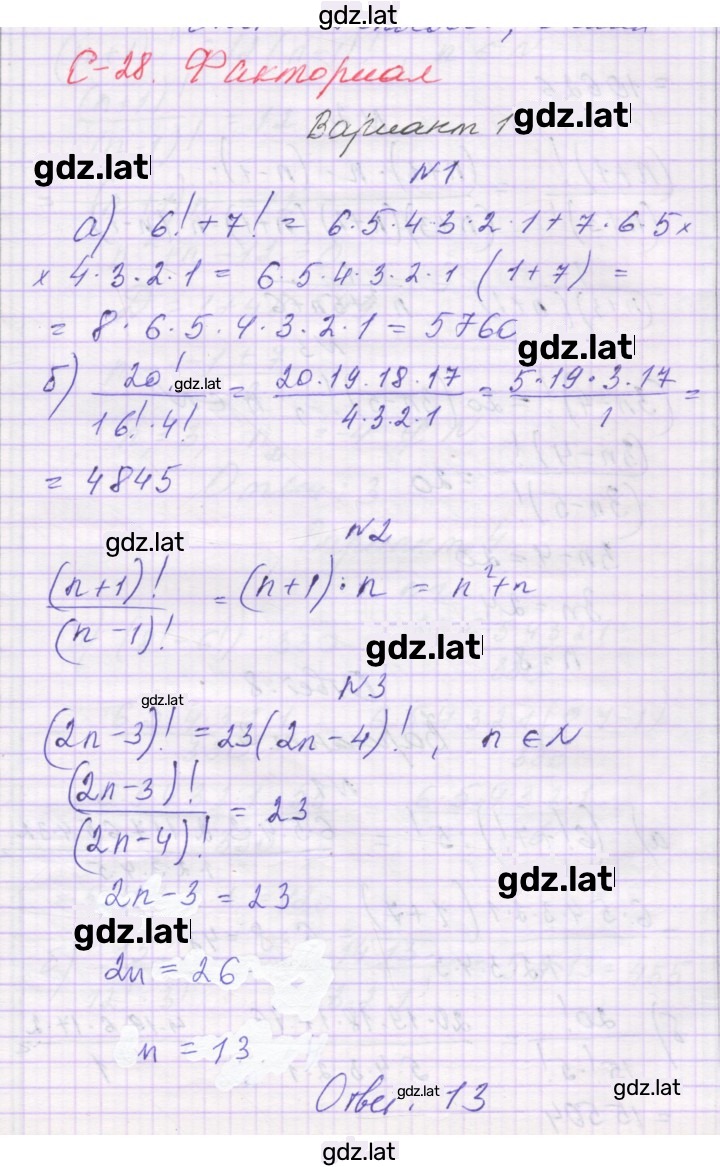 gdz.lat
С-28. Факториал
Вариант 1
gdz.lat
gdz.lat
№1
а) 6! + 7! = 6·5·4·3·2·1 + 7·6·5 ×
× 4·3·2·1 = 6·5·4·3·2·1 (1+7) =
= 8·6·5·4·3·2·1 = 5760
gdz.lat
б) 20! / 16!·4! = 20·19·18·17 / 4·3·2·1 = 5·19·3·17 / 1 =
gdz.lat
= 4845
№2
gdz.lat
(n+1)! / (n-1)! = (n+1)·n = n²+n
gdz.lat
№3
gdz.lat
(2n-3)! = 23(2n-4)!, n ∈ N
(2n-3)! / (2n-4)! = 23
2n-3 = 23
gdz.lat
gdz.lat
2n = 26
n = 13
Ответ: 13
gdz.lat
gdz.lat
gdz.lat